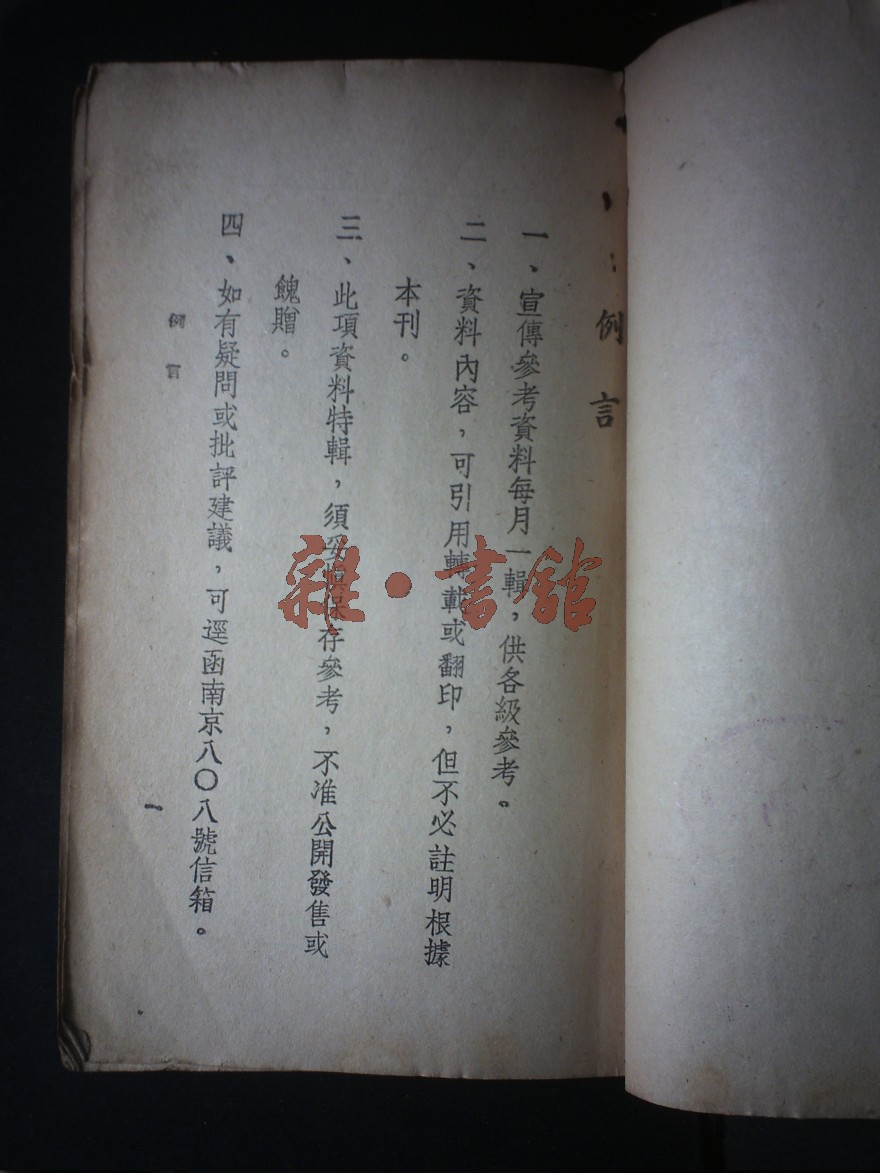 例言
一、宣傳參考資料每月一輯，供各級參考。
二、資料內容，可引用轉載或翻印，但不必註明根據
本刊。
三、此項資料特輯，須妥慎保存參考，不准公開發售或
餽贈。
四、如有疑問或批評建議，可逕函南京八〇八號信箱。
例言
一
雜·書館